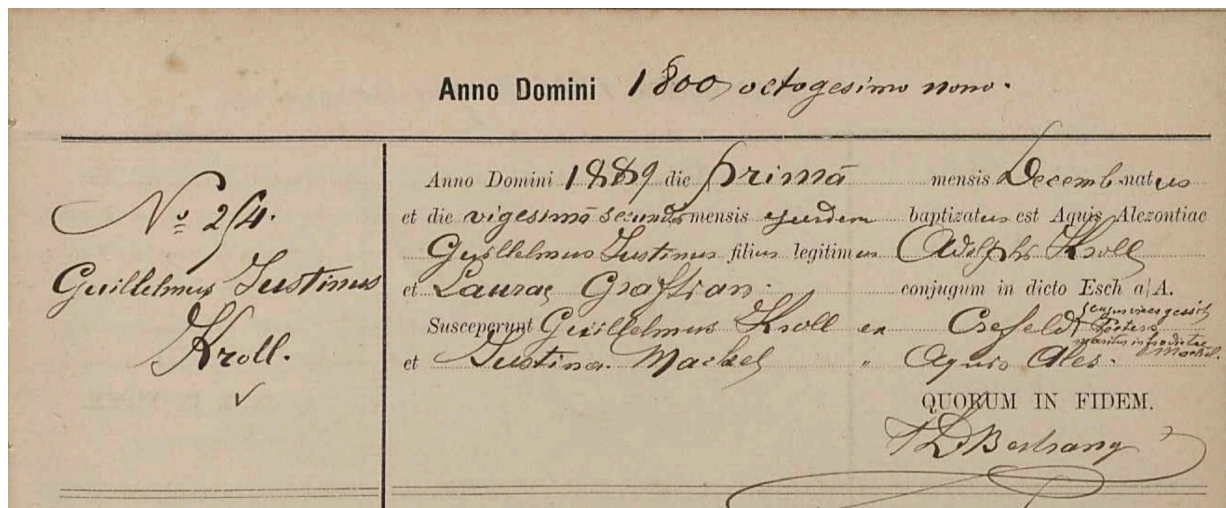 Anno Domini 1800 octogesimo nono.
Nº 214.
Guillelmus Justinus
Kroll.
Anno Domini 1889 die primā mensis Decemb. natus
et die vigesimā secundā mensis ejusdem baptizatus est Aquis Alezontiae
Guillelmus Justinus filius legitimus Adolphi Kroll
et Laurae Graftiau conjugum in dicto Esch a/A.
Susceperunt Guillelmus Kroll ex Crefeld cujus vices gessit
Peeters
maritus infradictae
Mackel.
et Justina Mackel " Aquis Alez.
QUORUM IN FIDEM.